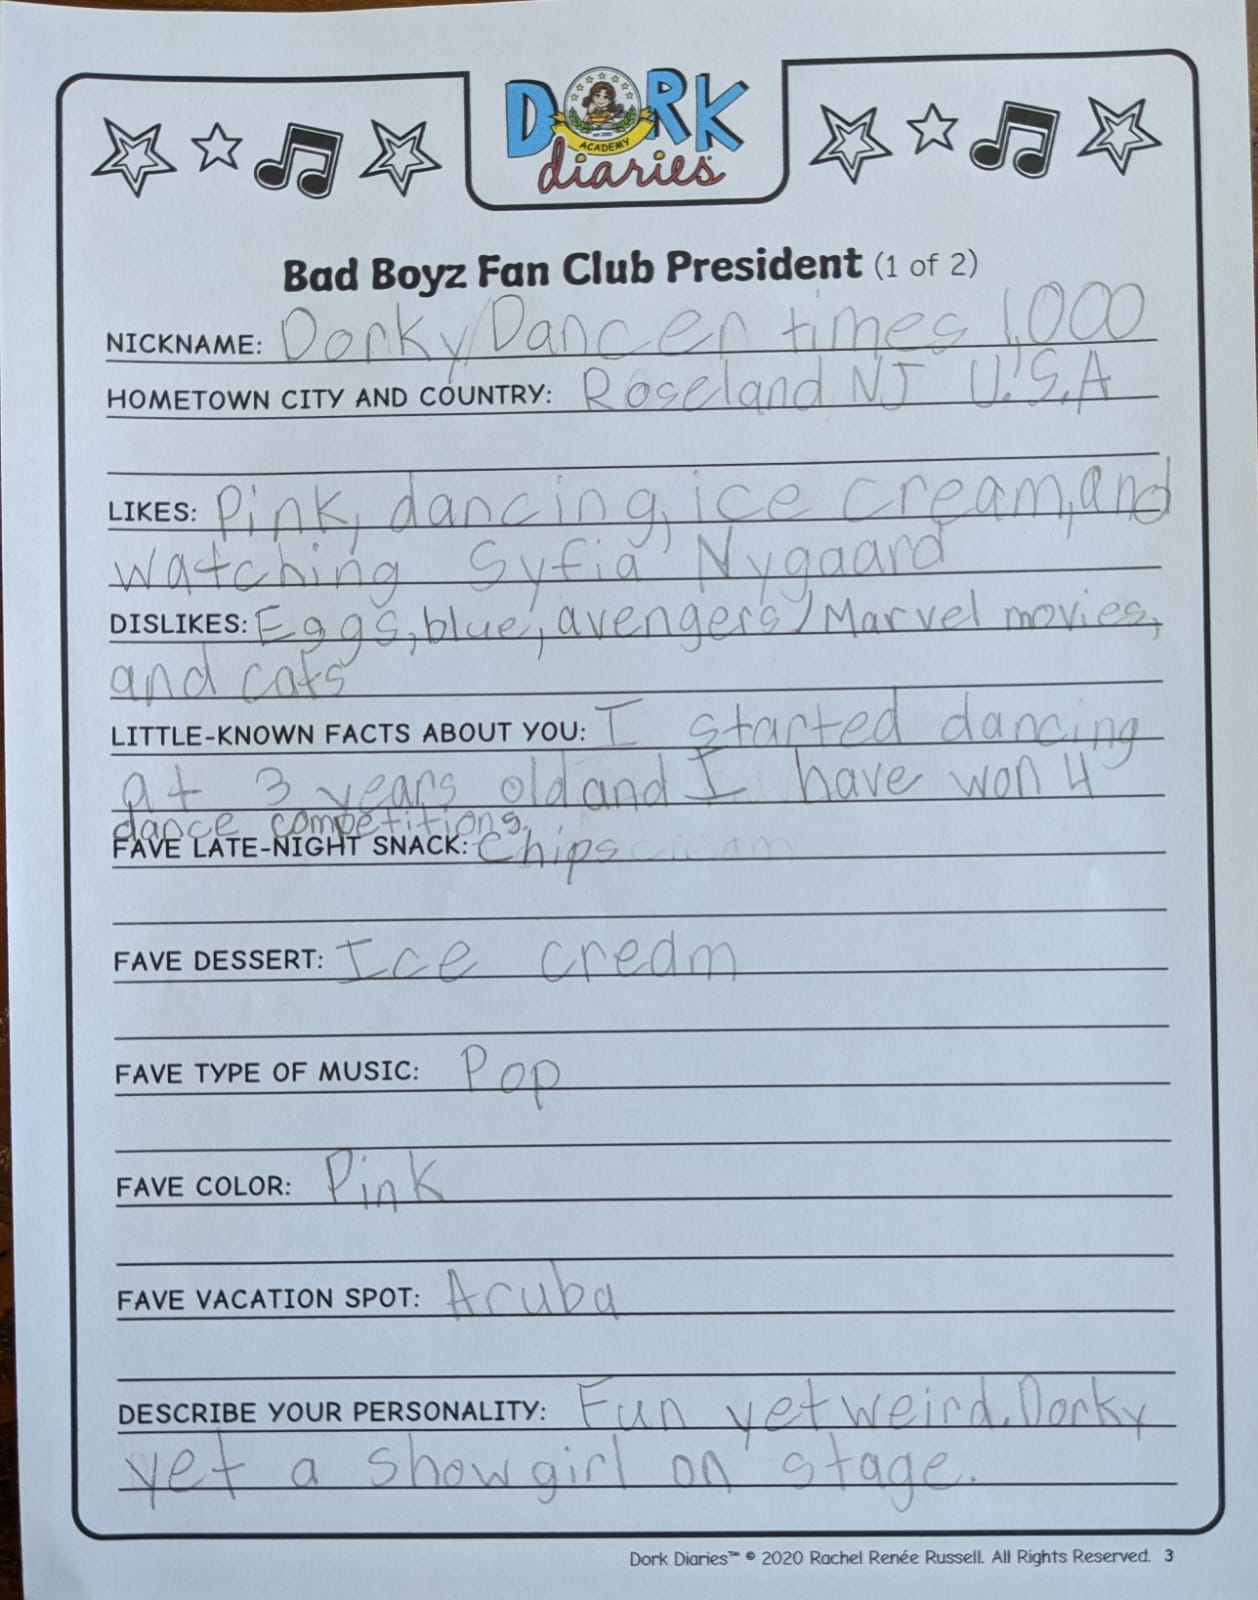 DORK
EST. 2020
ACADEMY
diaries
Bad Boyz Fan Club President (1 of 2)
NICKNAME: Dorky/Dancer times 1,000
HOMETOWN CITY AND COUNTRY: Roseland NJ U.S.A
LIKES: Pink, dancing, ice cream, and
watching Syfia Nygaard
DISLIKES: Eggs, blue, avengers/Marvel movies,
and cats
LITTLE-KNOWN FACTS ABOUT YOU: I started dancing
at 3 years old and I have won 4
dance competitions.
FAVE LATE-NIGHT SNACK: Chips cream
FAVE DESSERT: Ice cream
FAVE TYPE OF MUSIC: Pop
FAVE COLOR: Pink
FAVE VACATION SPOT: Aruba
DESCRIBE YOUR PERSONALITY: Fun yet weird. Dorky
yet a showgirl on stage.
Dork Diaries™ © 2020 Rachel Renée Russell. All Rights Reserved. 3